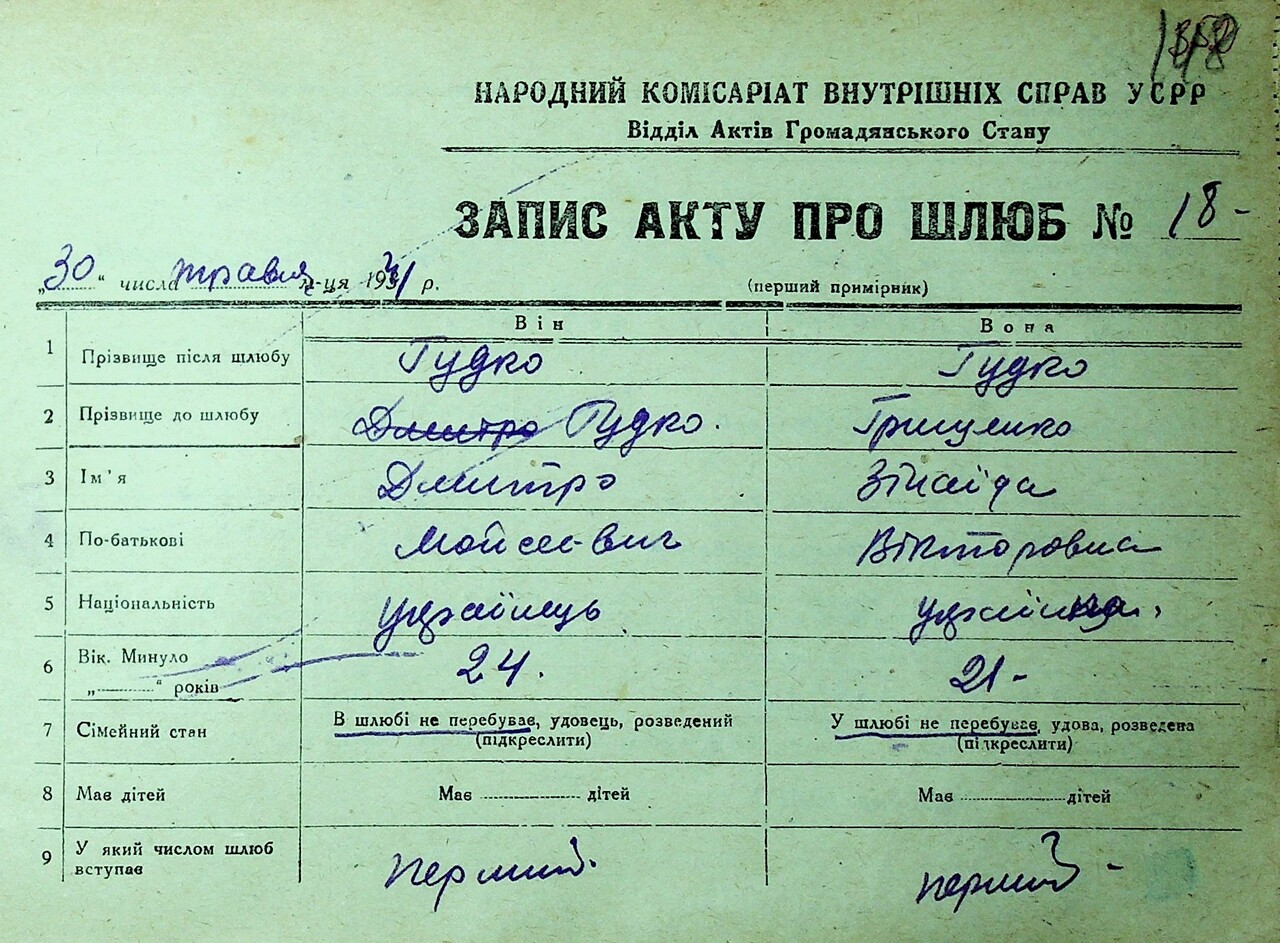 НАРОДНИЙ КОМІСАРІАТ ВНУТРІШНІХ СПРАВ УСРР
Відділ Актів Громадянського Стану
ЗАПИС АКТУ ПРО ШЛЮБ № 18-
„30“ числа травня м-ця 1941 р. (перший примірник)
Він Вона
1 Прізвище після шлюбу Гудко Гудко
2 Прізвище до шлюбу Дмитро Гудко. Грищенко
3 Ім'я Дмитро Зінаїда
4 По-батькові Мойсеєвич Вікторовна
5 Національність українець українка.
6 Вік. Минуло 24. 21-
„ “ років
7 Сімейний стан В шлюбі не перебував, удовець, розведений У шлюбі не перебував, удова, розведена
(підкреслити) (підкреслити)
8 Має дітей Має дітей Має дітей
9 У який числом шлюб перший. перший -
вступає